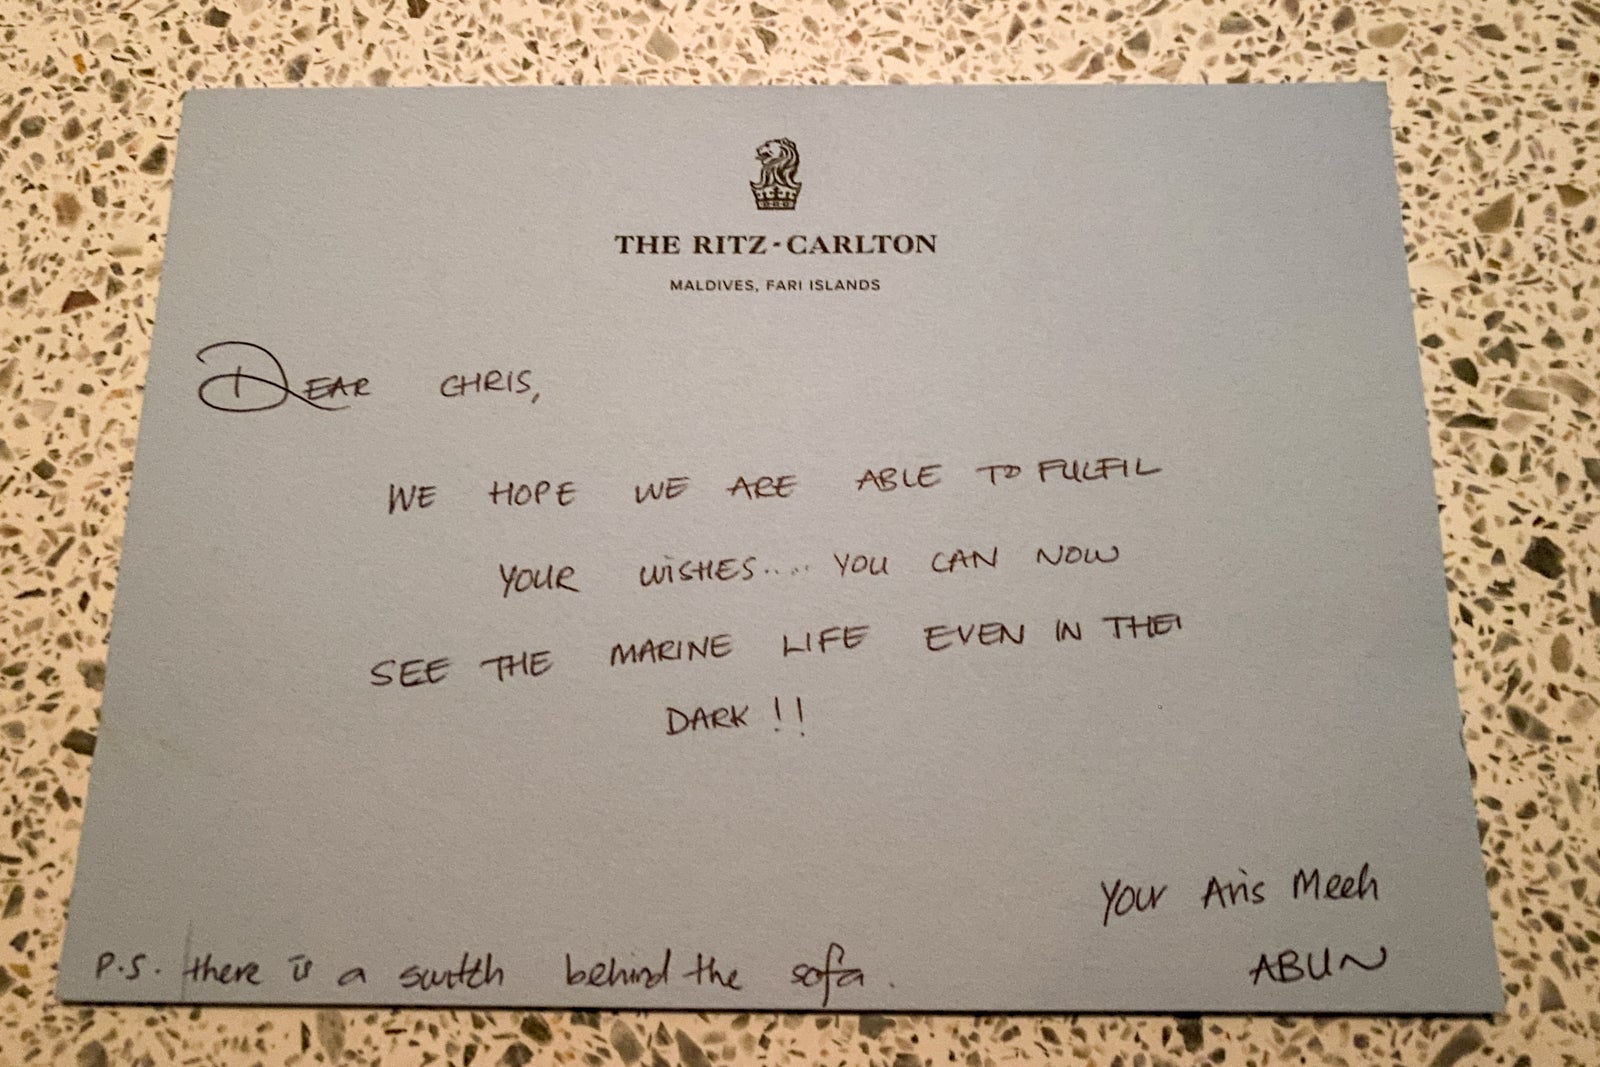 THE RITZ-CARLTON
MALDIVES, FARI ISLANDS
DEAR CHRIS,
WE HOPE WE ARE ABLE TO FULFIL
YOUR WISHES..... YOU CAN NOW
SEE THE MARINE LIFE EVEN IN THE
DARK !!
Your Aris Meeh
ABUN
P.S. there is a switch behind the sofa.